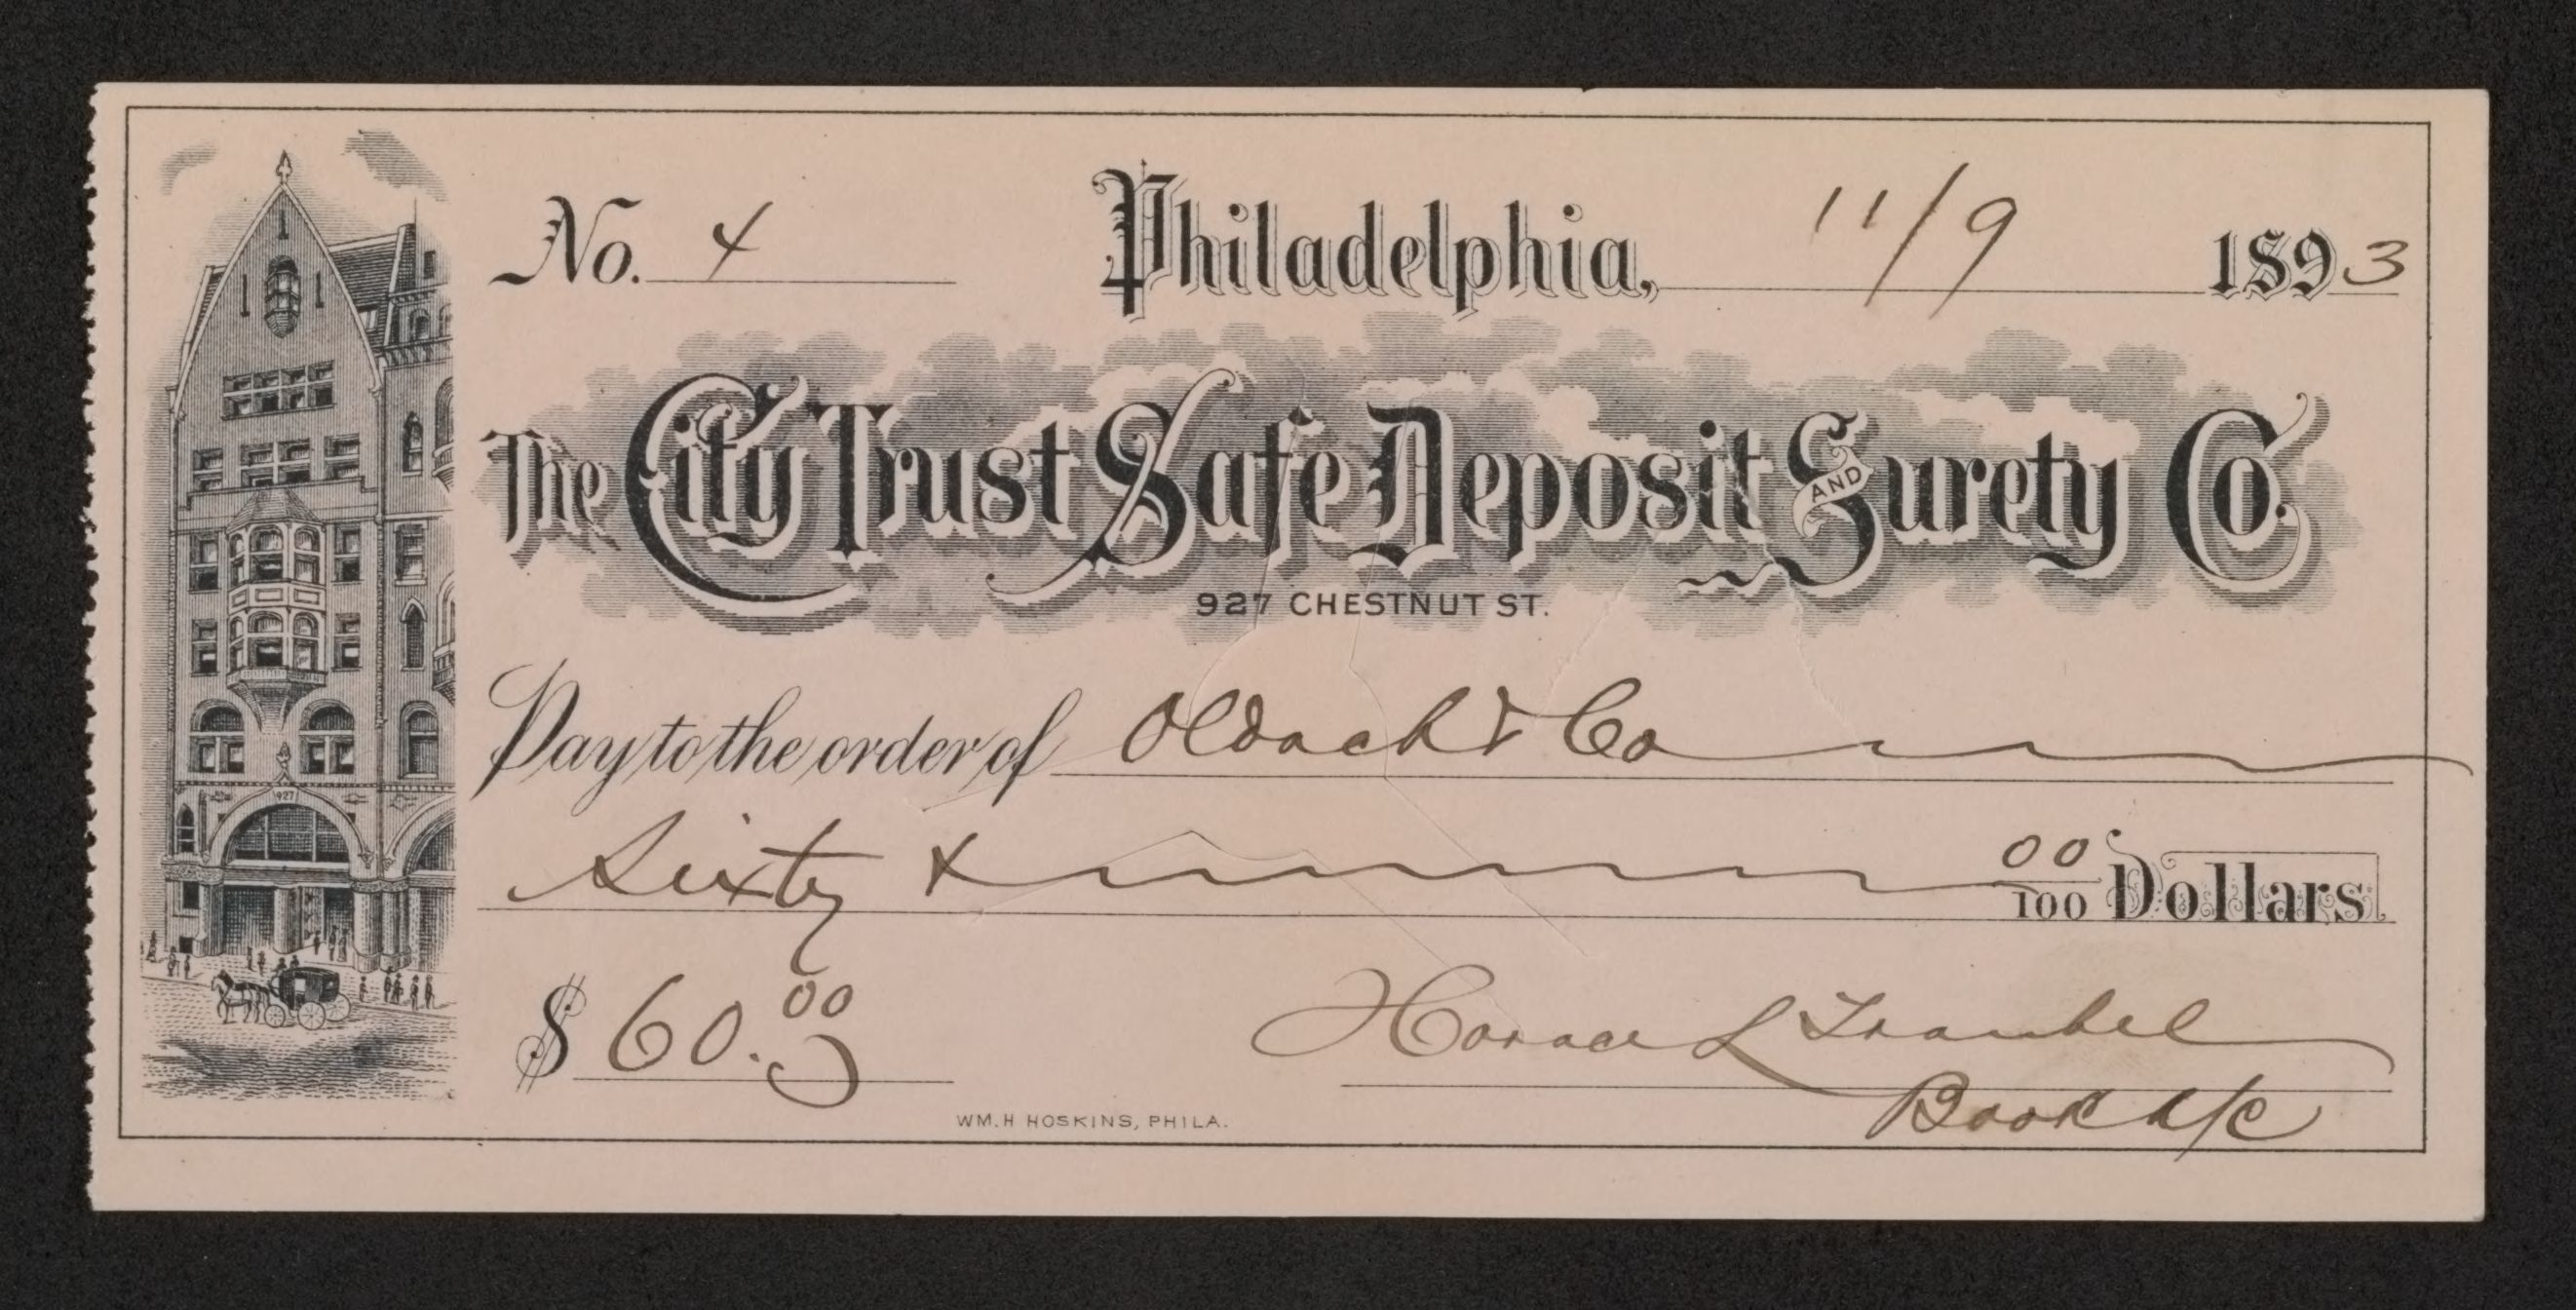 No. 4 Philadelphia, 11/9 1893
The City Trust Safe Deposit AND Surety Co.
927 CHESTNUT ST.
Pay to the order of Oldach & Co
Sixty & 00/100 Dollars
$ 60.00
Horace L Traubel
Book a/c
WM. H HOSKINS, PHILA.
927